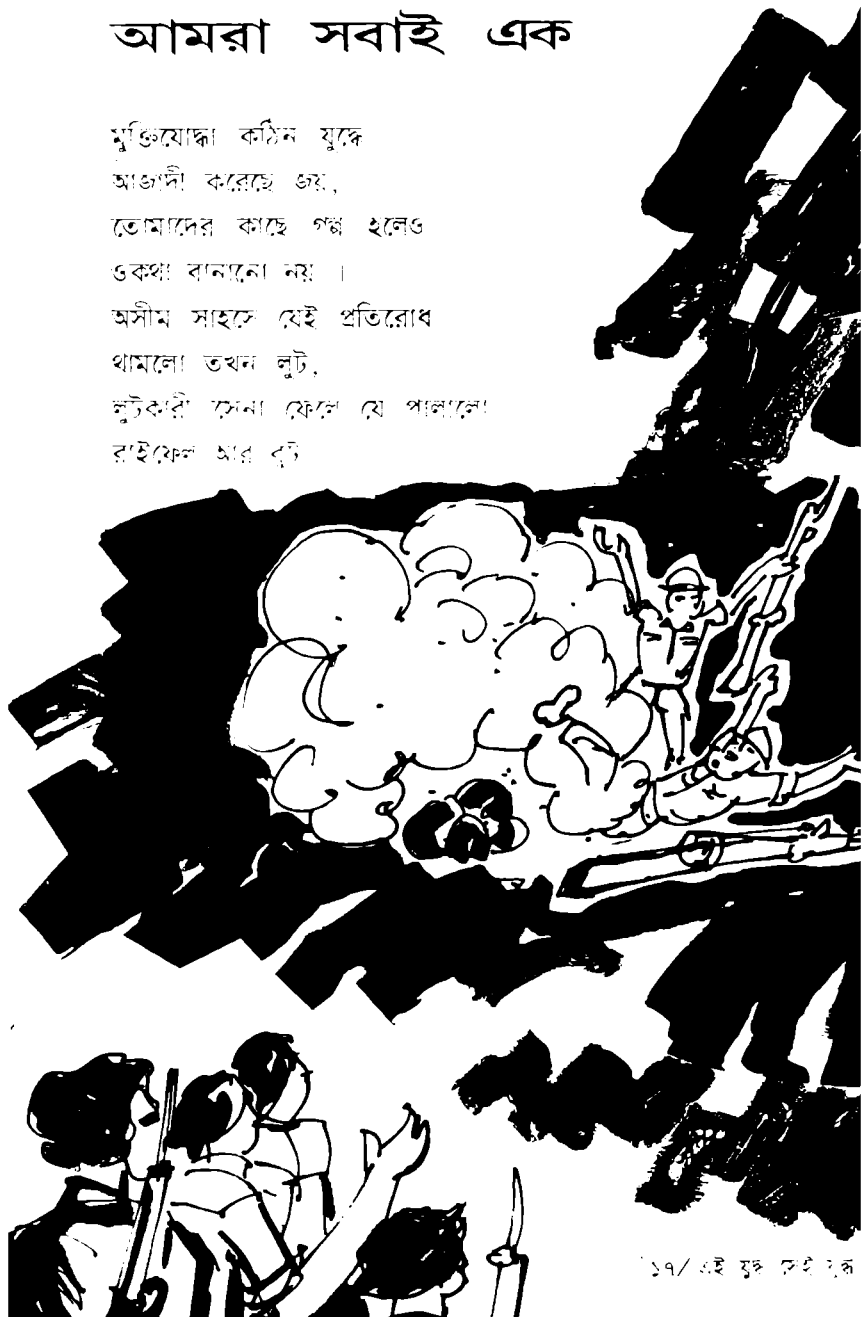 আমরা সবাই এক
মুক্তিযোদ্ধা কঠিন যুদ্ধে
আজাদী করেছে জয়,
তোমাদের কাছে গল্প হলেও
ওকথা বানানো নয় ।
অসীম সাহসে যেই প্রতিরোধ
থামলো তখন লুট,
লুটকারী সেনা ফেলে যে পালালো
রাইফেল আর বুট
১৭/ এই যুদ্ধ সেই যুদ্ধ